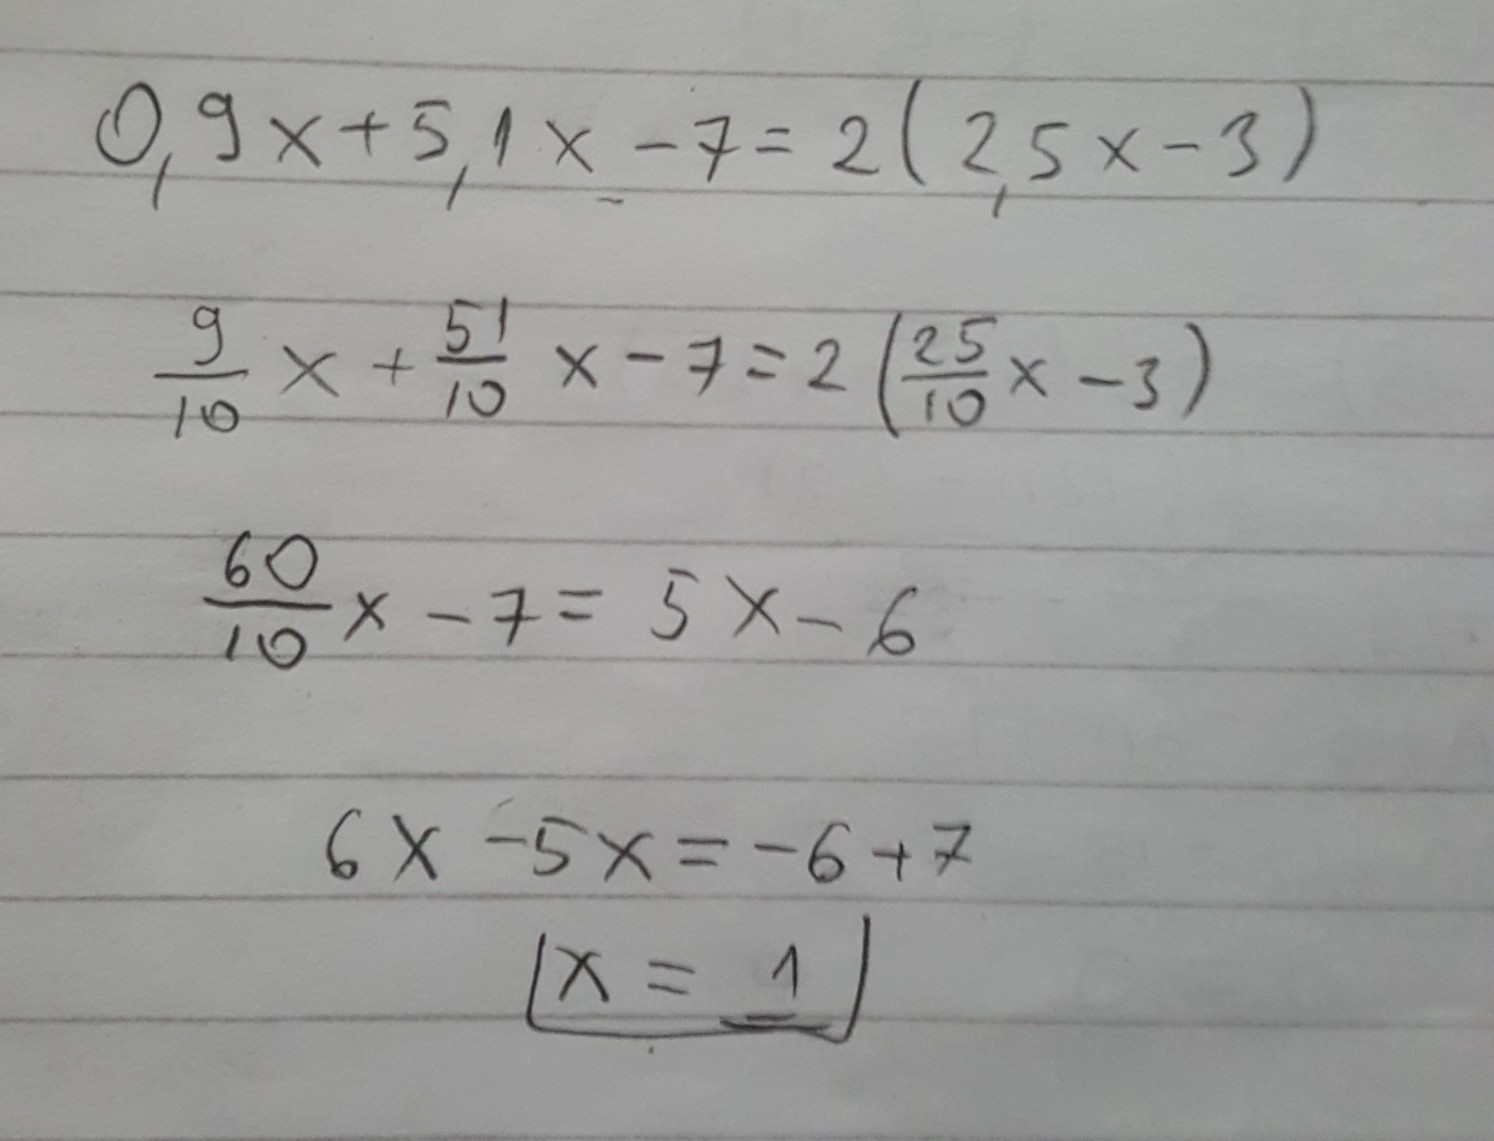 0,9x+5,1x-7=2(2,5x-3)
9/10 x + 51/10 x - 7 = 2(25/10 x - 3)
60/10 x - 7 = 5x - 6
6x - 5x = -6 + 7
x = 1